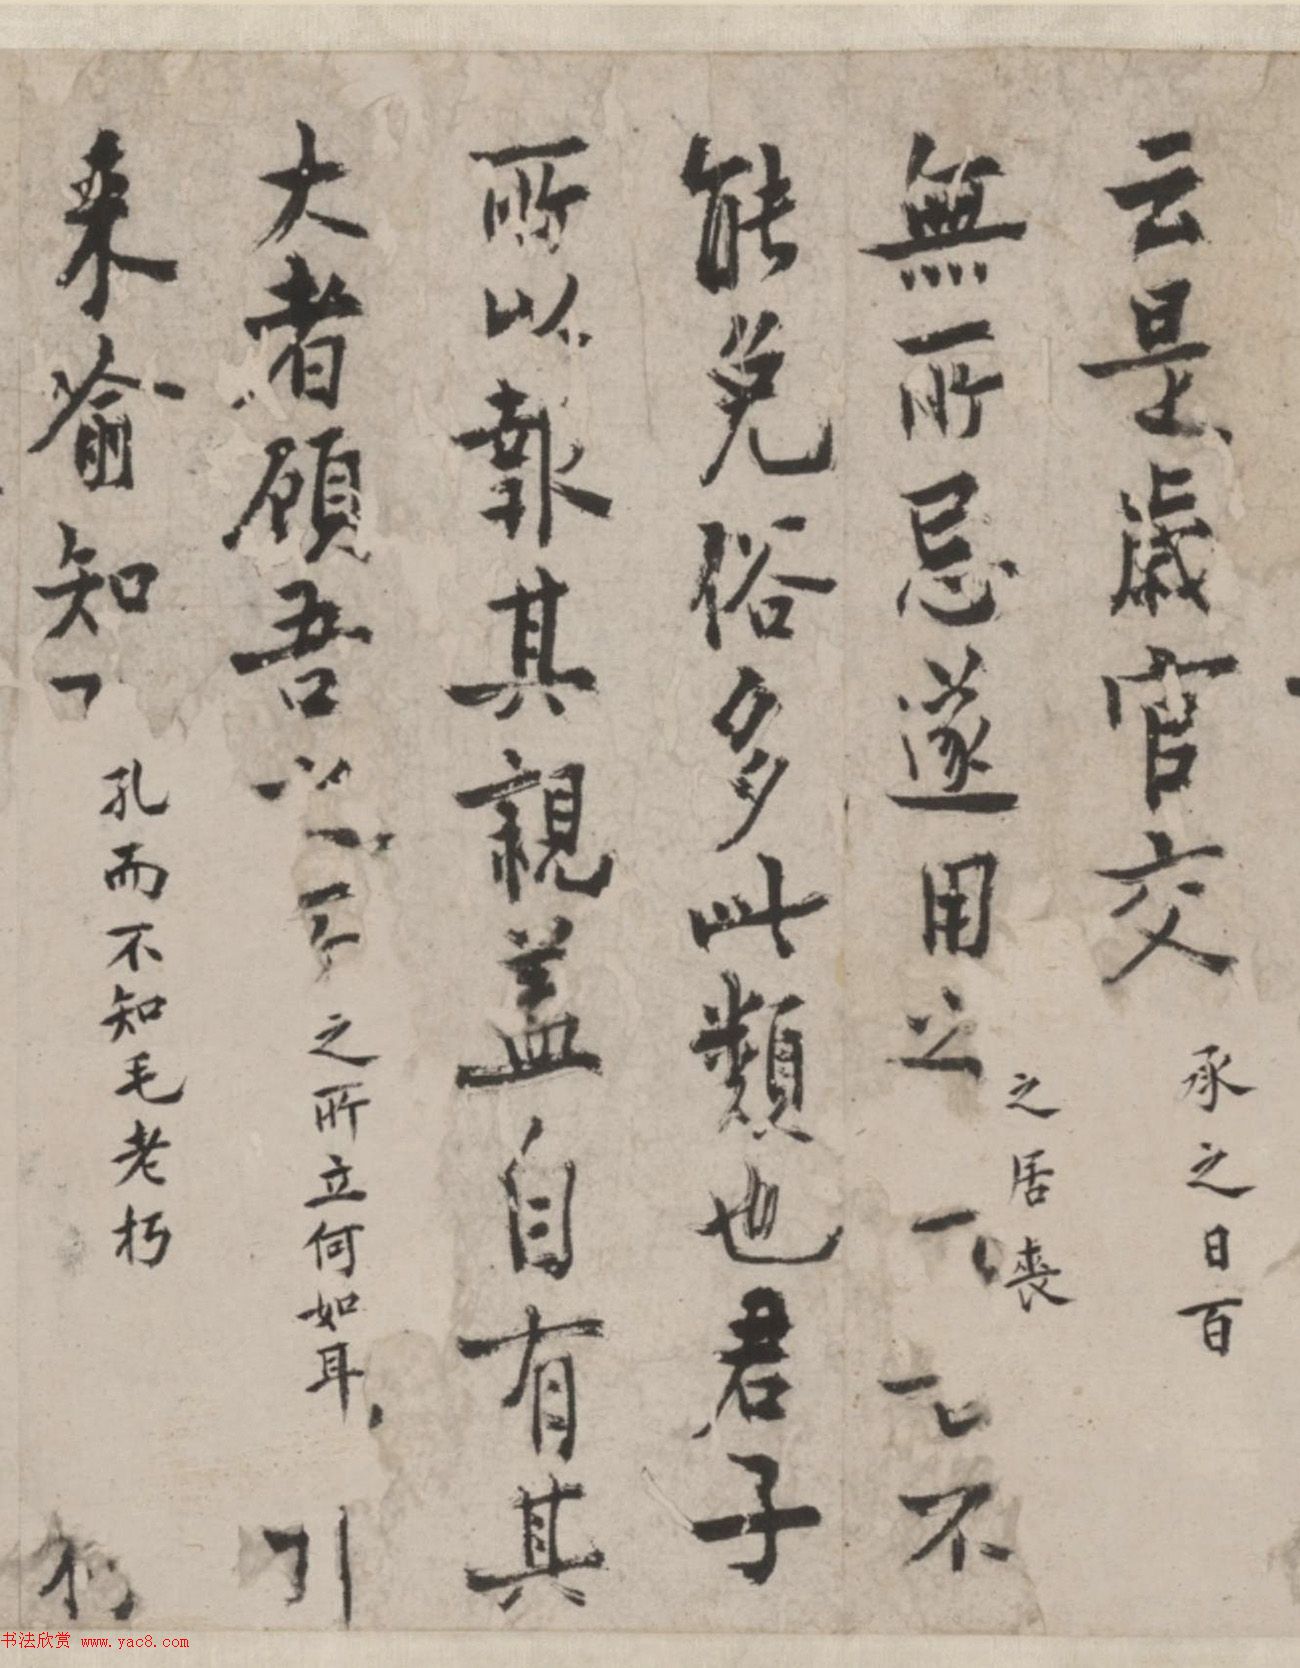 云是歲官交承之日百
無所忌遂用之之居喪不
能免俗多此類也君子
所以報其親盖自有其
大者顧吾之所立何如耳
来喻知孔而不知毛老朽
书法欣赏 www.yac8.com